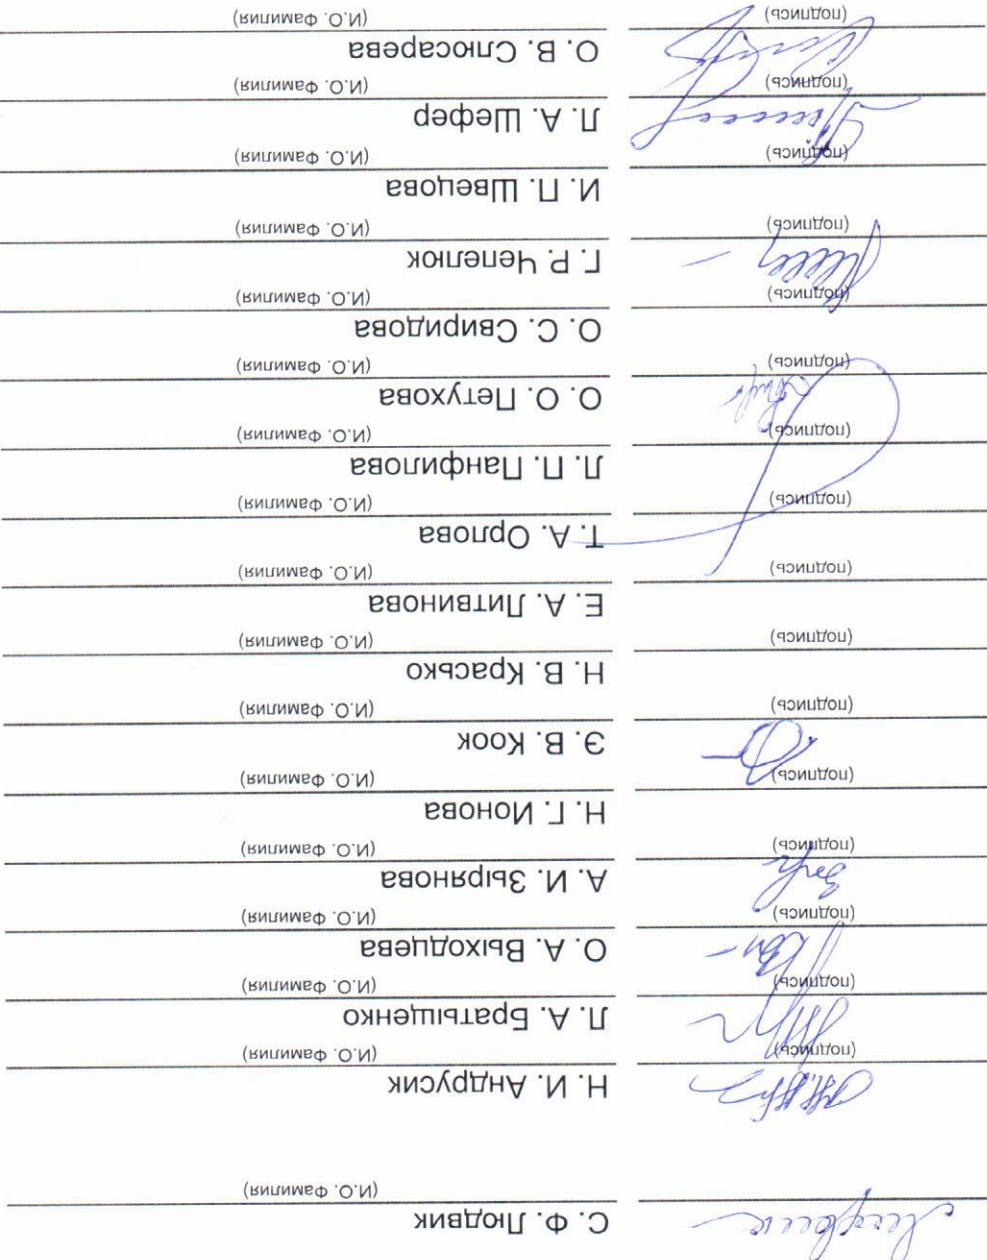 С. Ф. Людвик
(И.О. Фамилия)
Н. И. Андрусик
(подпись) (И.О. Фамилия)
Л. А. Братыщенко
(подпись) (И.О. Фамилия)
О. А. Выходцева
(подпись) (И.О. Фамилия)
А. И. Зырянова
(подпись) (И.О. Фамилия)
Н. Г. Ионова
(подпись) (И.О. Фамилия)
Э. В. Коок
(подпись) (И.О. Фамилия)
Н. В. Красько
(подпись) (И.О. Фамилия)
Е. А. Литвинова
(подпись) (И.О. Фамилия)
Т. А. Орлова
(подпись) (И.О. Фамилия)
Л. П. Панфилова
(подпись) (И.О. Фамилия)
О. О. Петухова
(подпись) (И.О. Фамилия)
О. С. Свиридова
(подпись) (И.О. Фамилия)
Г. Р. Чепелюк
(подпись) (И.О. Фамилия)
И. П. Швецова
(подпись) (И.О. Фамилия)
Л. А. Шефер
(подпись) (И.О. Фамилия)
О. В. Слюсарева
(подпись) (И.О. Фамилия)